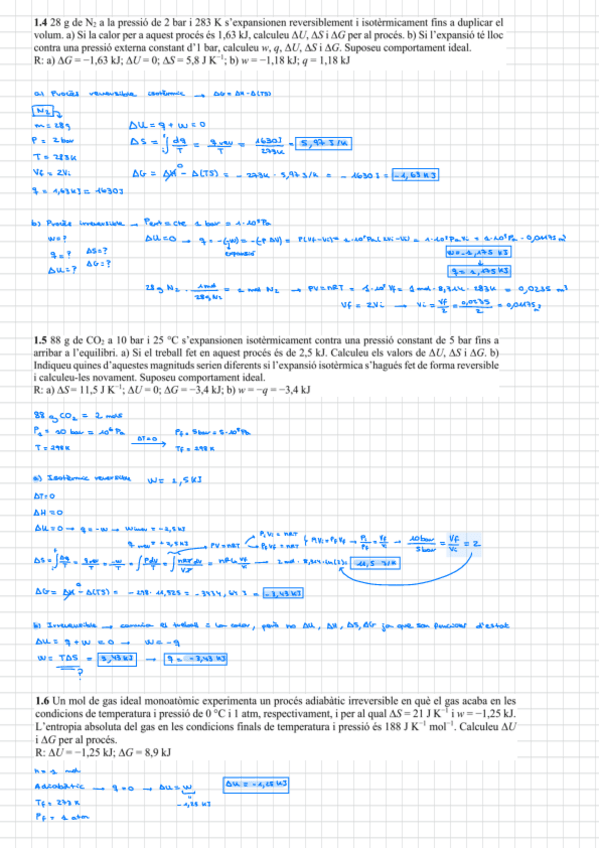 1.4 28 g de N₂ a la pressió de 2 bar i 283 K s'expansionen reversiblement i isotèrmicament fins a duplicar el
volum. a) Si la calor per a aquest procés és 1,63 kJ, calculeu ΔU, ΔS i ΔG per al procés. b) Si l'expansió té lloc
contra una pressió externa constant d'1 bar, calculeu w, q, ΔU, ΔS i ΔG. Suposeu comportament ideal.
R: a) ΔG = −1,63 kJ; ΔU = 0; ΔS = 5,8 J K⁻¹; b) w = −1,18 kJ; q = 1,18 kJ
a) Procés reversible isotèrmic → ΔG = ΔH - Δ(TS)
N₂
m = 28g
ΔU = q + w = 0
P = 2 bar
ΔS = ∫ dq/T = q rev/T = 1630J/273K = 5,97 J/K
T = 283K
Vf = 2Vi
ΔG = ΔH⁰ - Δ(TS) = - 273K · 5,97 J/K = - 1630 J = -1,63 KJ
q = 1,63 KJ = 1630J
b) Procés irreversible → Pext = cte 1 bar = 1·10⁵Pa
w = ?
ΔU = 0 → q = -(-w) = -(-P ΔV) = P(Vf-Vi) = 1·10⁵Pa(2Vi-Vi) = 1·10⁵Pa Vi = 1·10⁵Pa · 0,01175 m³
expansió
q = ? ΔS = ?
w = -1,175 KJ
ΔU = ? ΔG = ?
q = 1,175 KJ
28g N₂ · 1mol/28g N₂ = 1 mol N₂ → PV = nRT → 1·10⁵ Vf = 1 mol · 8,314 · 283K = 0,0235 m³
Vf = 2Vi → Vi = Vf/2 = 0,0235/2 = 0,01175
1.5 88 g de CO₂ a 10 bar i 25 °C s'expansionen isotèrmicament contra una pressió constant de 5 bar fins a
arribar a l'equilibri. a) Si el treball fet en aquest procés és de 2,5 kJ. Calculeu els valors de ΔU, ΔS i ΔG. b)
Indiqueu quines d'aquestes magnituds serien diferents si l'expansió isotèrmica s'hagués fet de forma reversible
i calculeu-les novament. Suposeu comportament ideal.
R: a) ΔS = 11,5 J K⁻¹; ΔU = 0; ΔG = −3,4 kJ; b) w = −q = −3,4 kJ
88 g CO₂ = 2 mols
P₁ = 10 bar = 10⁶ Pa
ΔT=0
Pf = 5bar = 5·10⁵Pa
T = 298K
Tf = 298 K
a) Isotèrmic reversible W = 2,5KJ
ΔT = 0
ΔH = 0
ΔU = 0 → q = -w
ΔG = ΔH⁰ - Δ(TS) = -298 · 11,525 = -3434,67 J = -3,43 KJ
ΔU = q + w = 0 → w = -q
w = TΔS = 3,43 KJ → q = -3,43KJ
?
1.6 Un mol de gas ideal monoatòmic experimenta un procés adiabàtic irreversible en què el gas acaba en les
condicions de temperatura i pressió de 0 °C i 1 atm, respectivament, i per al qual ΔS = 21 J K⁻¹ i w = −1,25 kJ.
L'entropia absoluta del gas en les condicions finals de temperatura i pressió és 188 J K⁻¹ mol⁻¹. Calculeu ΔU
i ΔG per al procés.
R: ΔU = −1,25 kJ; ΔG = 8,9 kJ
n = 1 mol
Adiabàtic → q = 0 → ΔU = w
ΔU = -1,25 KJ
Tf = 273 K
-1,25 KJ
Pf = 1 atm